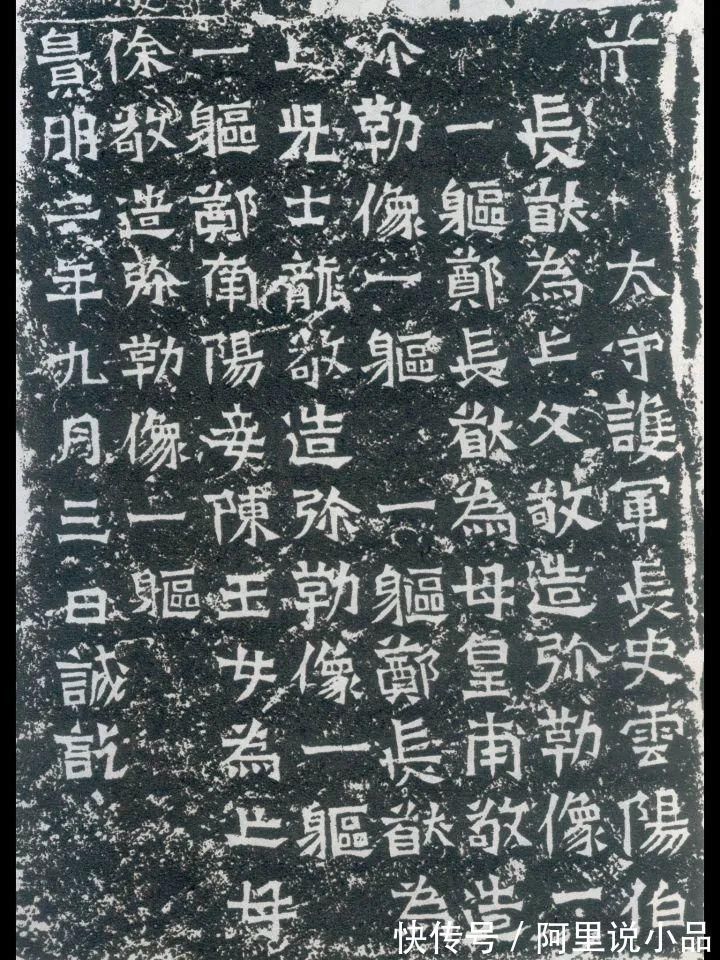 太守護軍長史雲陽伯
長猷為亡父敬造弥勒像一
一軀鄭長猷為母皇甫敬造
弥勒像一軀 一軀鄭長猷為
亡兒士龍敬造弥勒像一軀
一軀鄭南陽妾陳玉女為亡母
徐敬造弥勒像一軀
景明二年九月三日誠訖
快传号 / 阿里说小品